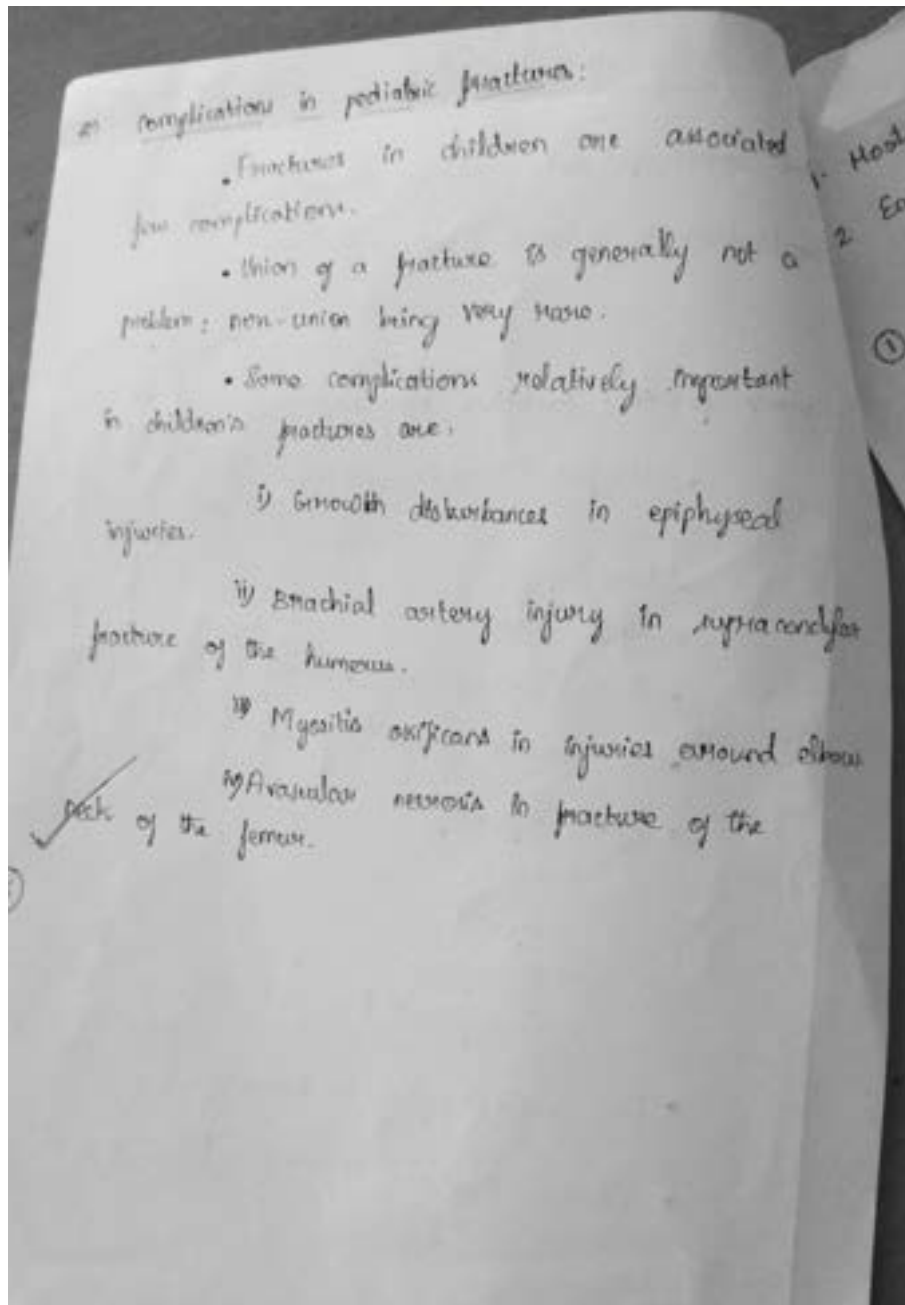 2) complications in pediatric fractures:
• Fractures in children are associated
few complications.
• Union of a fracture is generally not a
problem; non-union being very rare.
• Some complications relatively important
in children's fractures are.
i) Growth disturbances in epiphyseal
injuries.
ii) Brachial artery injury in supracondylar
fracture of the humerus.
iii) Myositis ossificans in injuries around elbow
iv) Avascular necrosis in fracture of the
neck of the femur.
1. Most
2
1